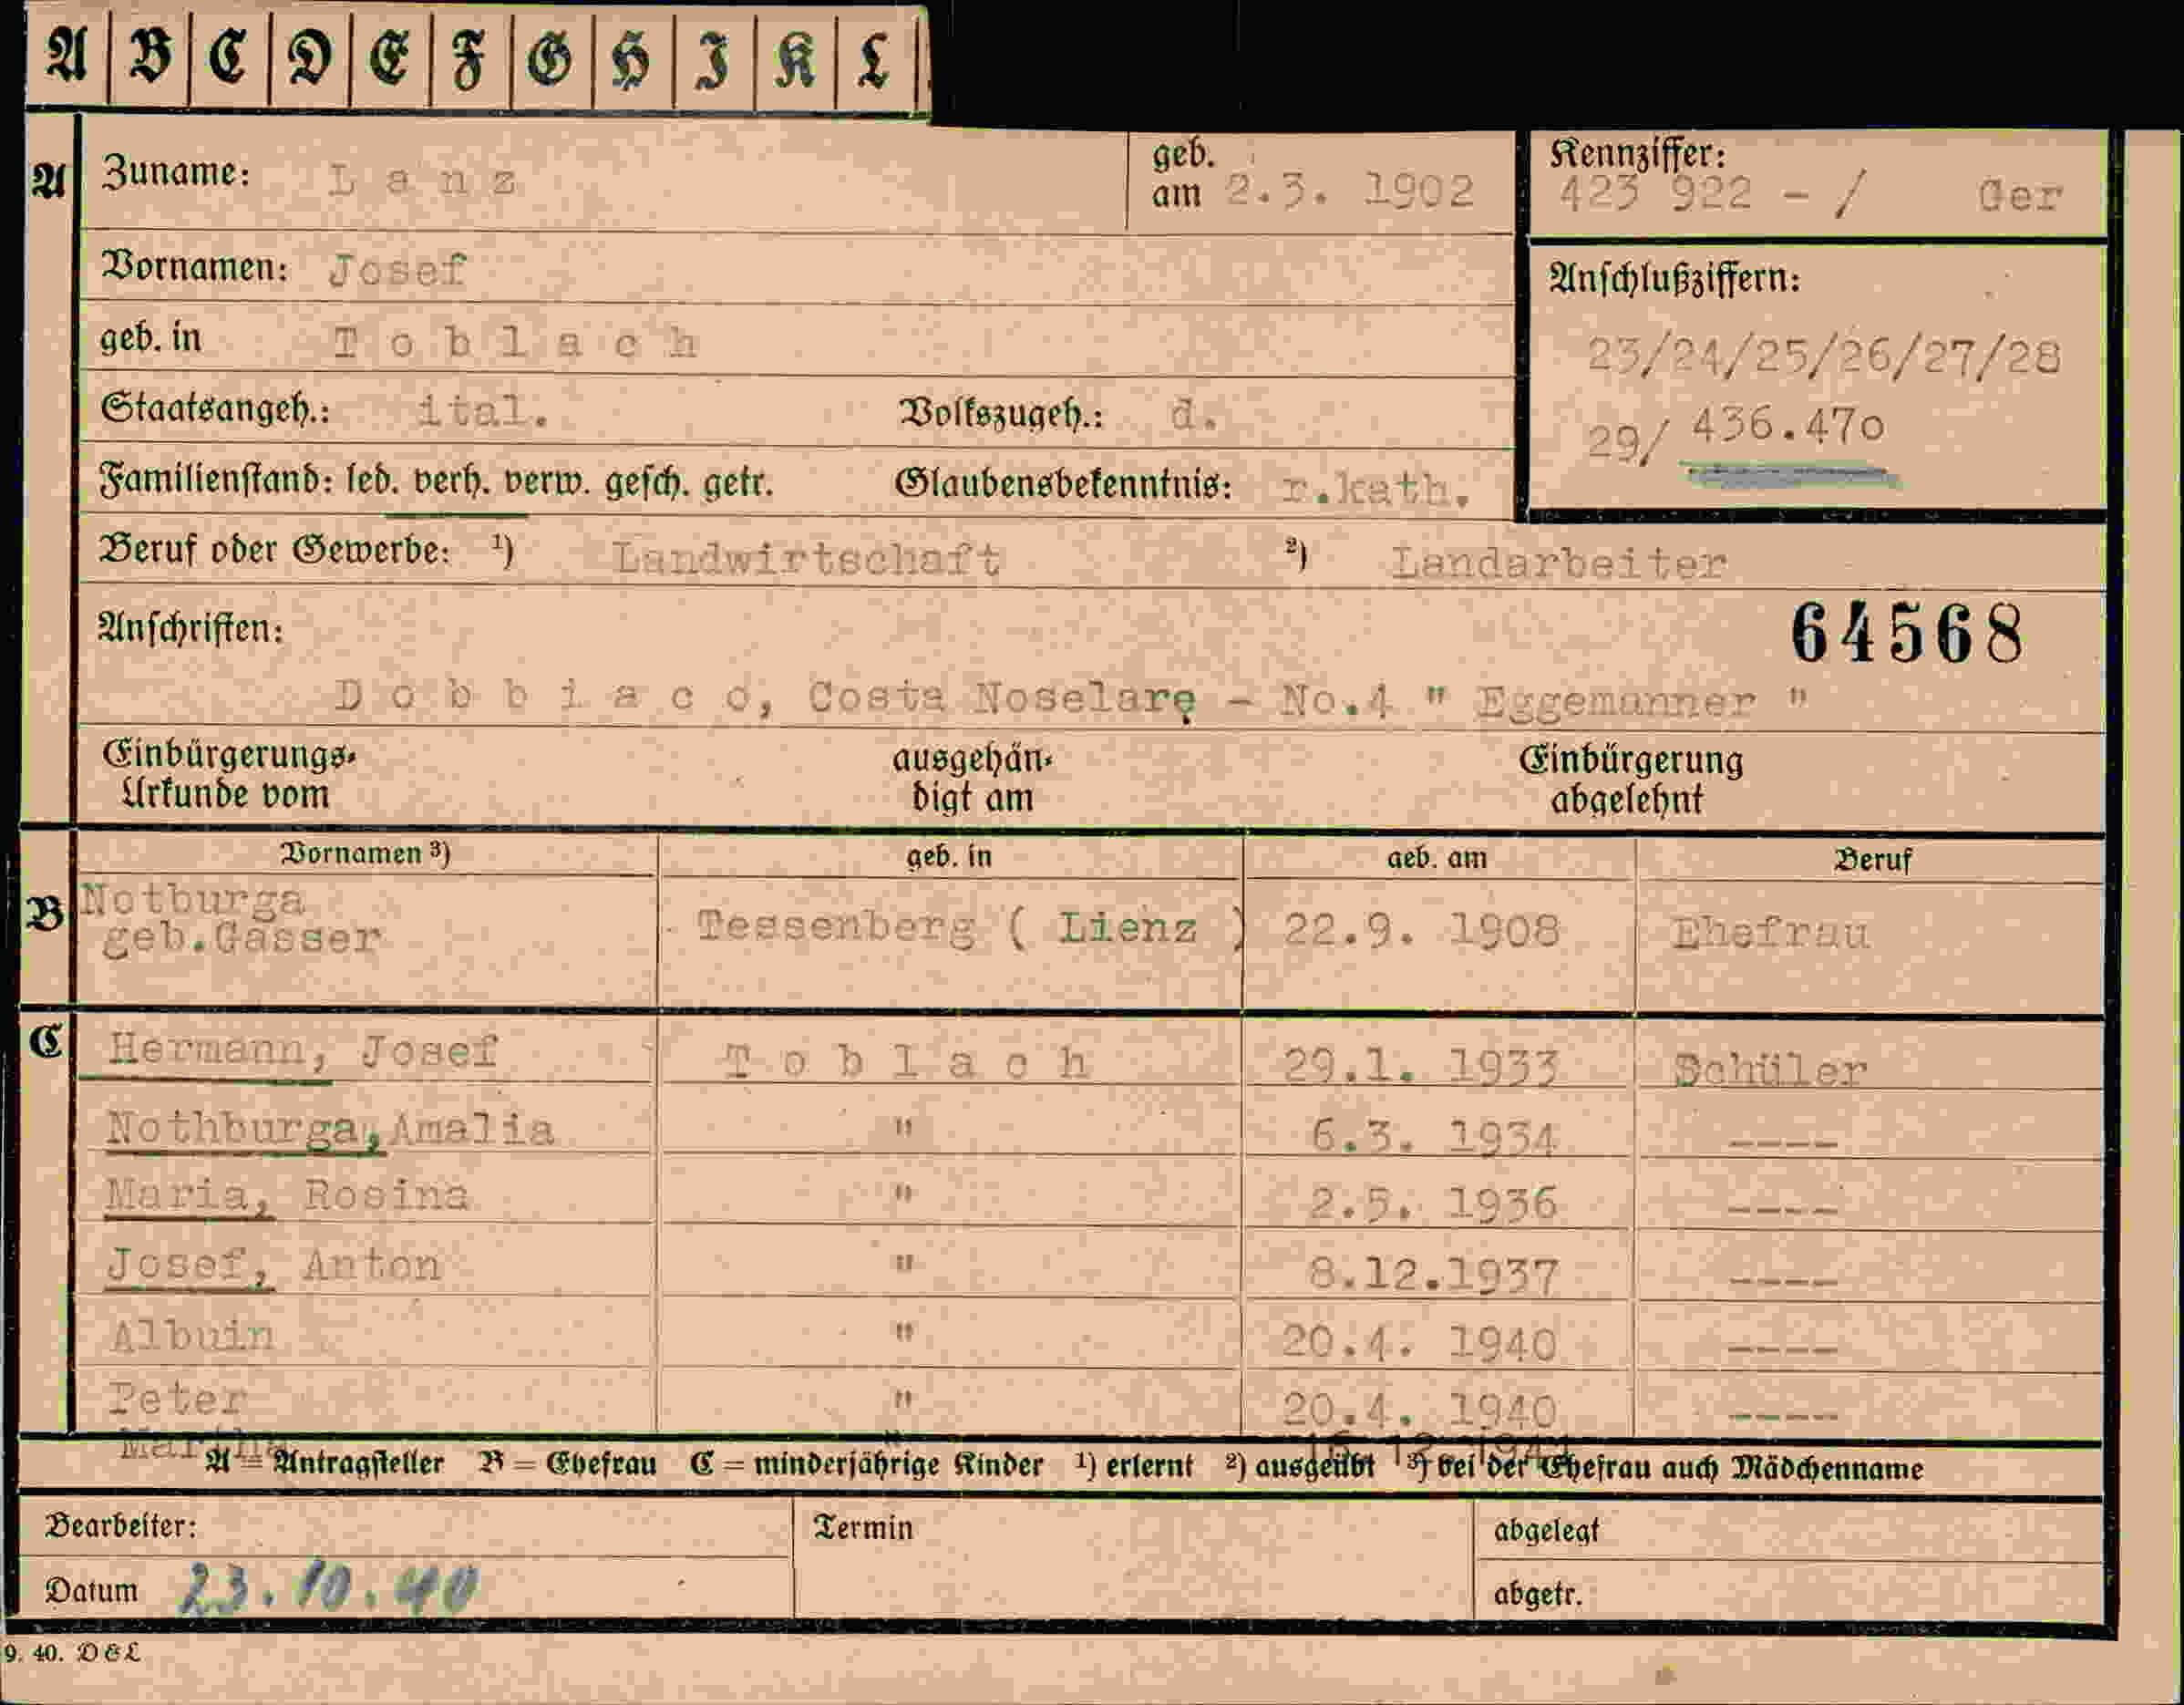 A B C D E F G H I K L
A Zuname: Lanz geb. am 2.3. 1902 Kennziffer: 423 922 - / Ger
Vornamen: Josef
Anschlußziffern:
geb. in Toblach
23/24/25/26/27/28
Staatsangeh.: ital. Volkszugeh.: d.
29/ 436.470
Familienstand: led. verh. verw. gesch. getr. Glaubensbekenntnis: r.kath.
Beruf oder Gewerbe: ¹) Landwirtschaft ²) Landarbeiter
Anschriften: 64568
Dobbiaco, Costa Noselare - No.4 " Eggemanner "
Einbürgerungs- ausgehän- Einbürgerung
Urkunde vom digt am abgelehnt
Vornamen ³) geb. in geb. am Beruf
B Notburga
geb.Gasser Tessenberg ( Lienz ) 22.9. 1908 Ehefrau
C Hermann, Josef Toblach 29.1. 1933 Schüler
Nothburga,Amalia " 6.3. 1934 ----
Maria, Rosina " 2.5. 1936 ----
Josef, Anton " 8.12.1937 ----
Albuin " 20.4. 1940 ----
Peter " 20.4. 1940 ----
A = Antragsteller B = Ehefrau C = minderjährige Kinder ¹) erlernt ²) ausgeübt ³) bei der Ehefrau auch Mädchenname
Bearbeiter: Termin abgelegt
Datum 23.10.40 abgetr.
9. 40. D & L